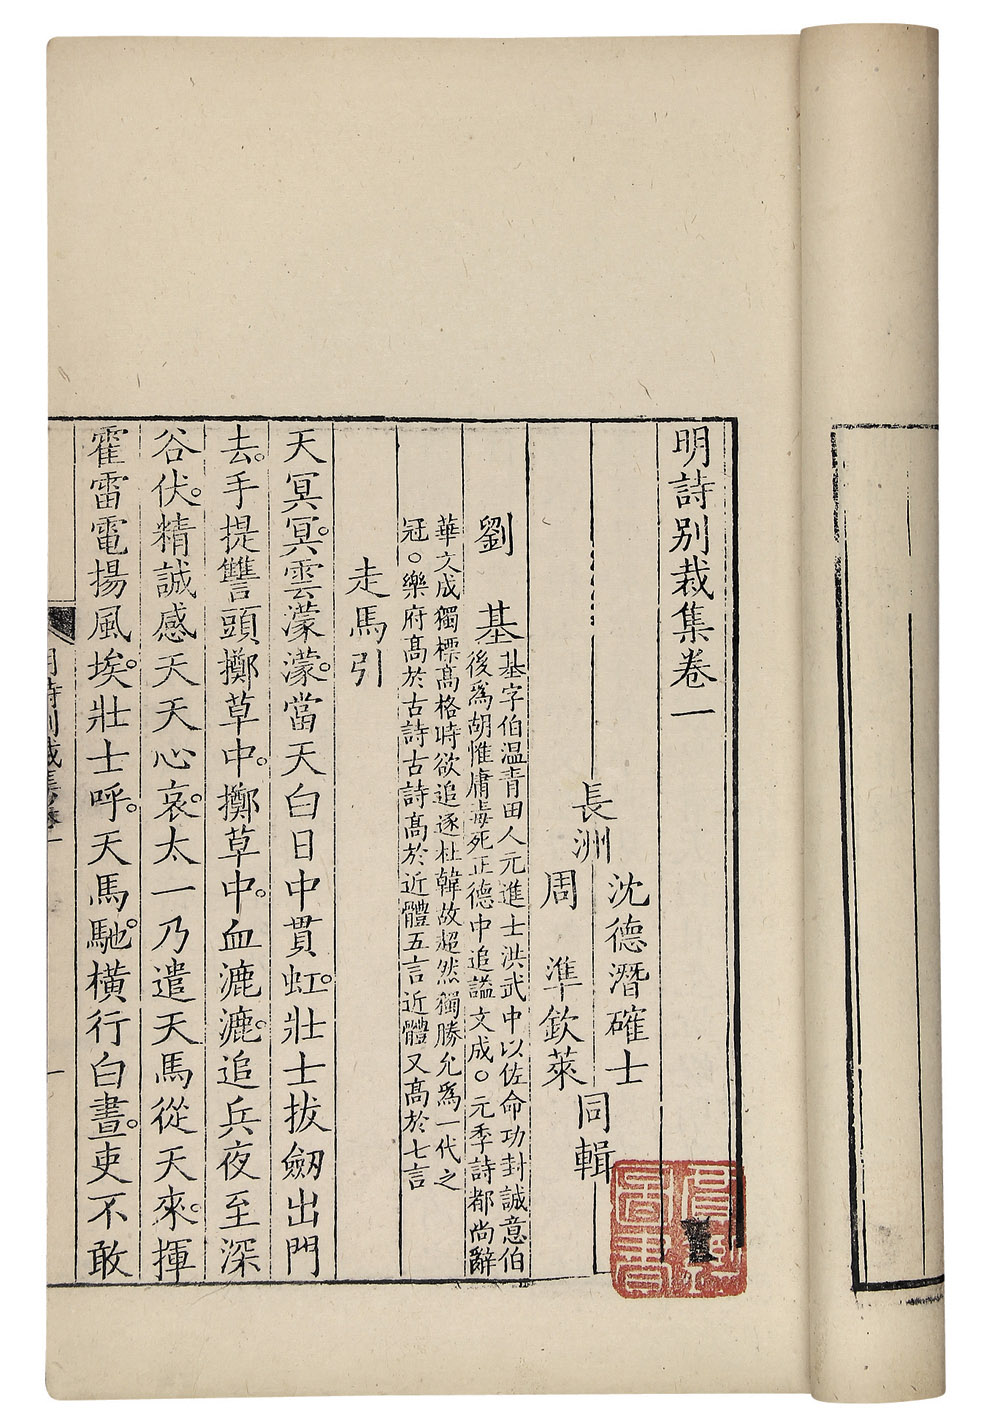 明詩別裁集卷一
長洲
沈德潛確士
周準欽萊
同輯
劉基
基字伯温青田人元進士洪武中以佐命功封誠意伯
後爲胡惟庸毒死正德中追謚文成○元季詩都尚辭
華文成獨標高格時欲追逐杜韓故超然獨勝允爲一代之
冠○樂府高於古詩古詩高於近體五言近體又高於七言
走馬引
天冥冥。雲濛濛。當天白日中貫虹。壯士拔劒出門
去。手提讐頭擲草中。擲草中。血漉漉。追兵夜至深
谷伏。精誠感天天心哀。太一乃遣天馬從天來。揮
霍雷電揚風埃。壯士呼。天馬馳。橫行白晝。吏不敢
明詩別裁集卷一
一
圖書